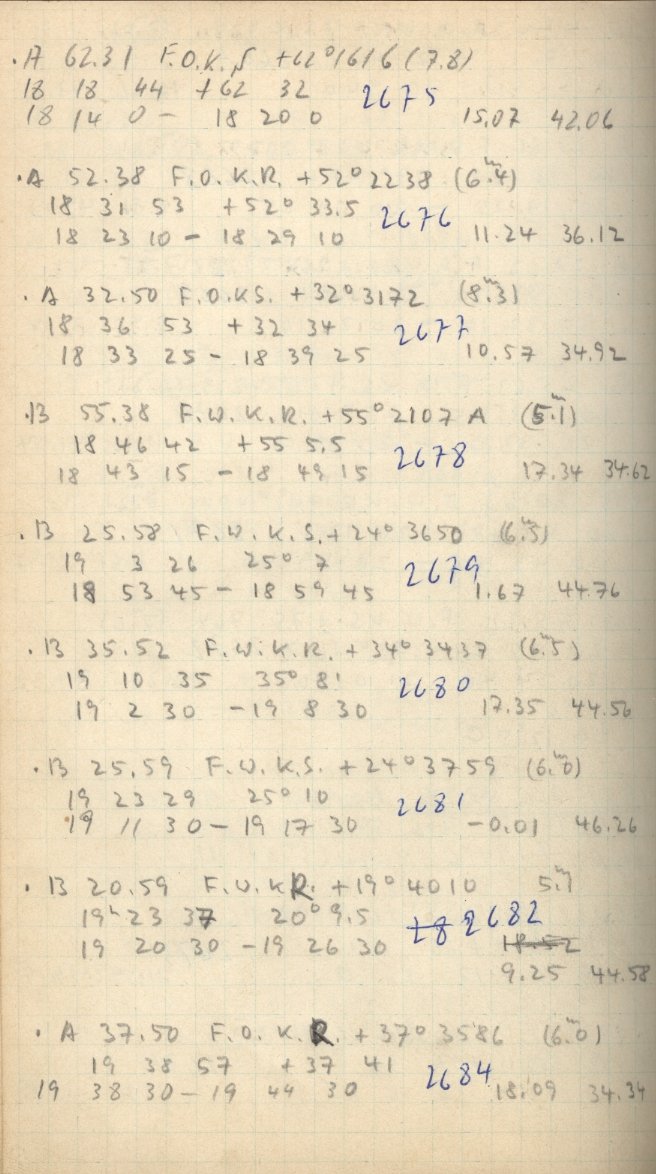 · A 62.31 F.O.K.S +62° 1616 (7.8)
18 18 44 +62 32 2675
18 14 0 - 18 20 0 15.07 42.06
· A 52.38 F.O.K.R. +52° 2238 (6.ᵐ4)
18 31 53 +52° 33.5 2676
18 23 10 - 18 29 10 11.24 36.12
· A 32.50 F.O.K.S. +32° 3172 (8.ᵐ3)
18 36 53 +32 34 2677
18 33 25 - 18 39 25 10.57 34.92
· B 55.38 F.W.K.R. +55° 2107 A (5.ᵐ1)
18 46 42 +55 5.5 2678
18 43 15 - 18 49 15 17.34 34.62
· B 25.58 F.W.K.S. + 24° 3650 (6.ᵐ5)
19 3 26 25° 7 2679
18 53 45 - 18 59 45 1.67 44.76
· B 35.52 F.W.K.R. + 34° 3437 (6.ᵐ5)
19 10 35 35° 8' 2680
19 2 30 - 19 8 30 17.35 44.56
· B 25.59 F.W.K.S. +24° 3759 (6.ᵐ0)
19 23 29 25° 10 2681
19 11 30 - 19 17 30 -0.01 46.26
· B 20.59 F.W.K.R. +19° 4010 5.ᵐ1
19ʰ 23 37 20° 9.5 28 2682
19 20 30 - 19 26 30 18.52
9.25 44.58
· A 37.50 F.O.K.R. +37° 3586 (6.ᵐ0)
19 38 57 +37 41 2684
19 38 30 - 19 44 30 18.09 34.34